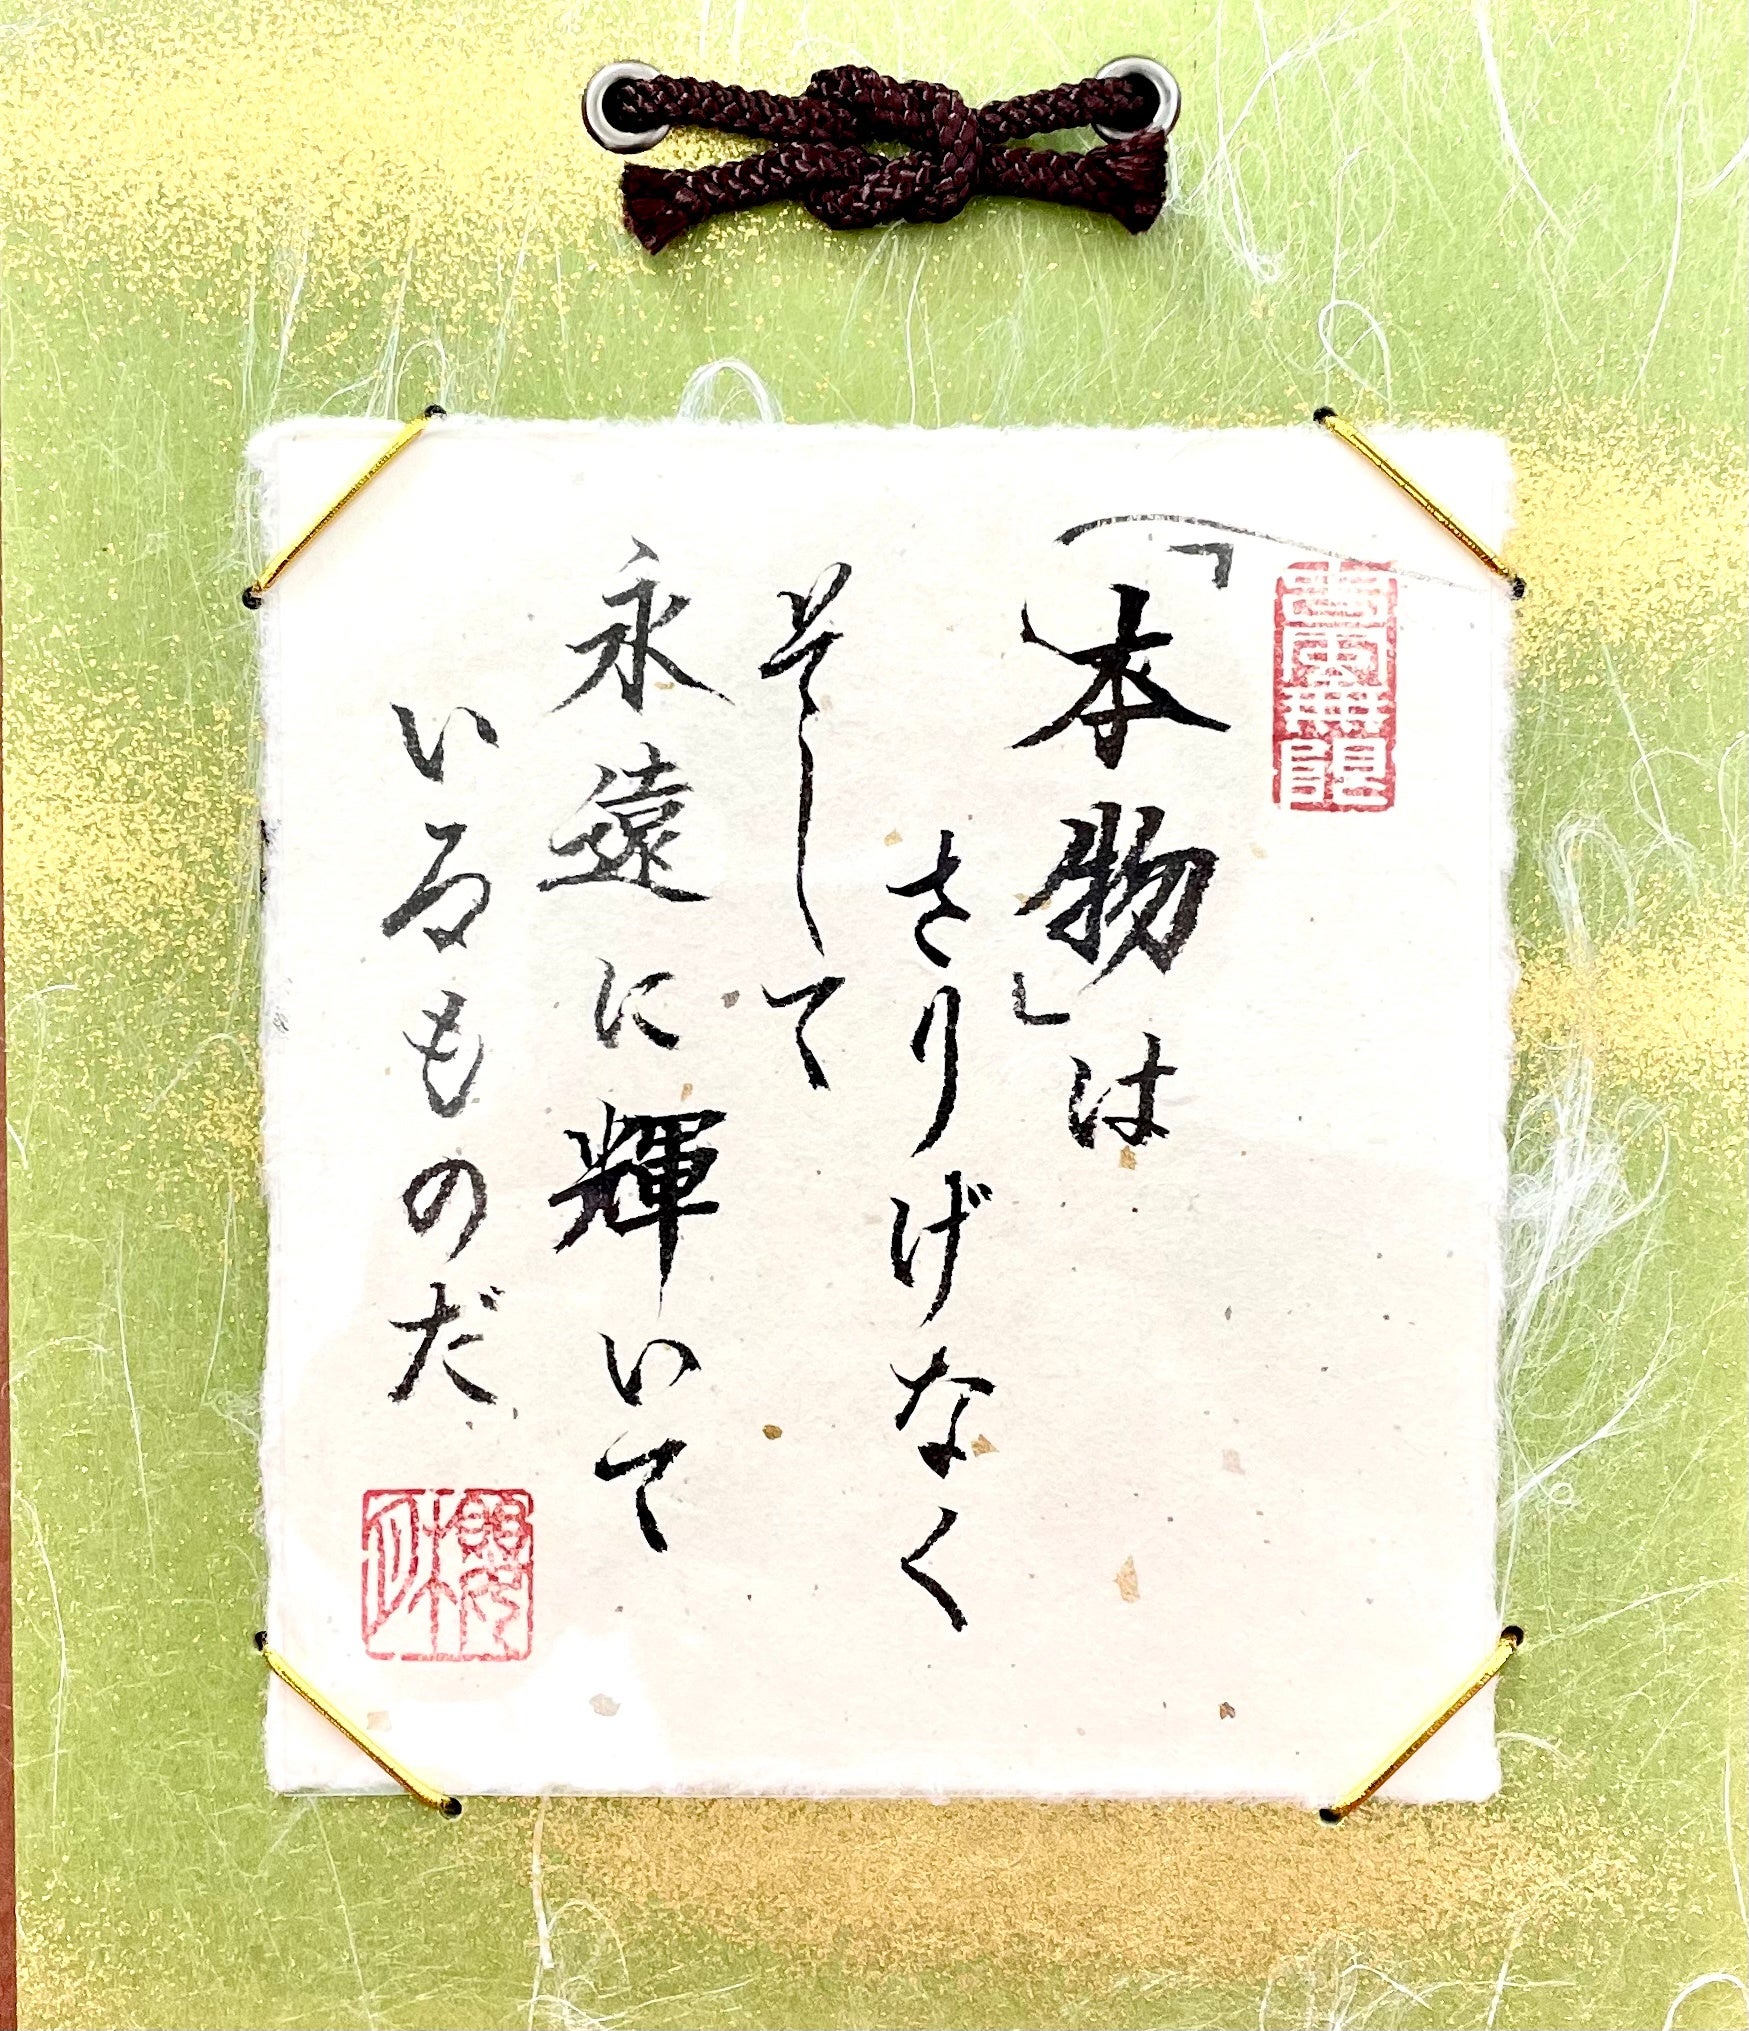 「本物」は
さりげなく
そして
永遠に輝いて
いるものだ